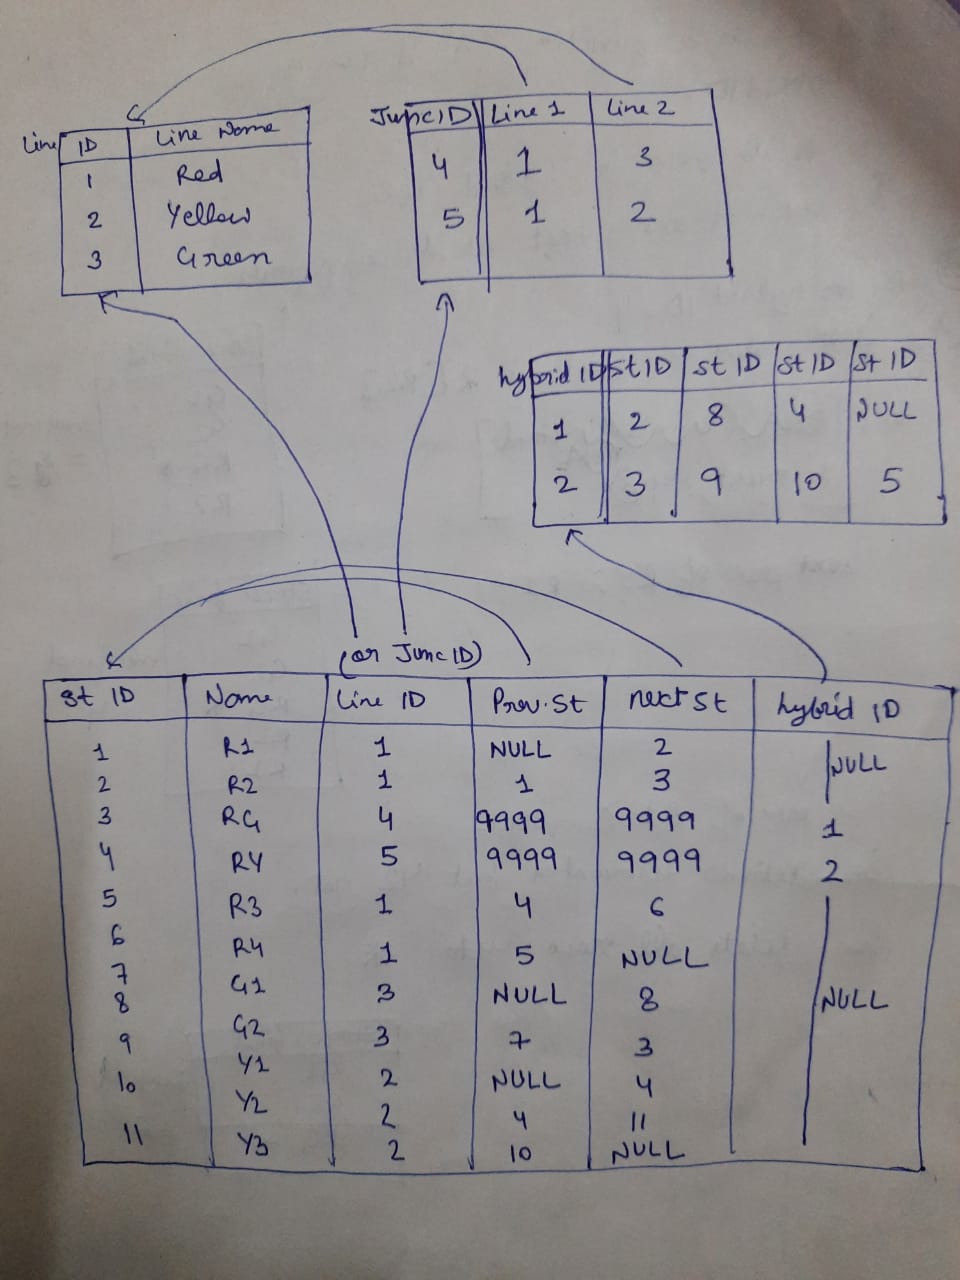 Line ID Line Name
1 Red
2 Yellow
3 Green
Junc ID Line 1 Line 2
4 1 3
5 1 2
hybrid ID St ID St ID St ID St ID
1 2 8 4 NULL
2 3 9 10 5
(or Junc ID)
St ID Name Line ID Prev. St next St hybrid ID
1 R1 1 NULL 2 NULL
2 R2 1 1 3
3 RG 4 9999 9999 1
4 RY 5 9999 9999 2
5 R3 1 4 6
6 R4 1 5 NULL
7 G1 3 NULL 8 NULL
8 G2 3 7 3
9 Y1 2 NULL 4
10 Y2 2 4 11
11 Y3 2 10 NULL